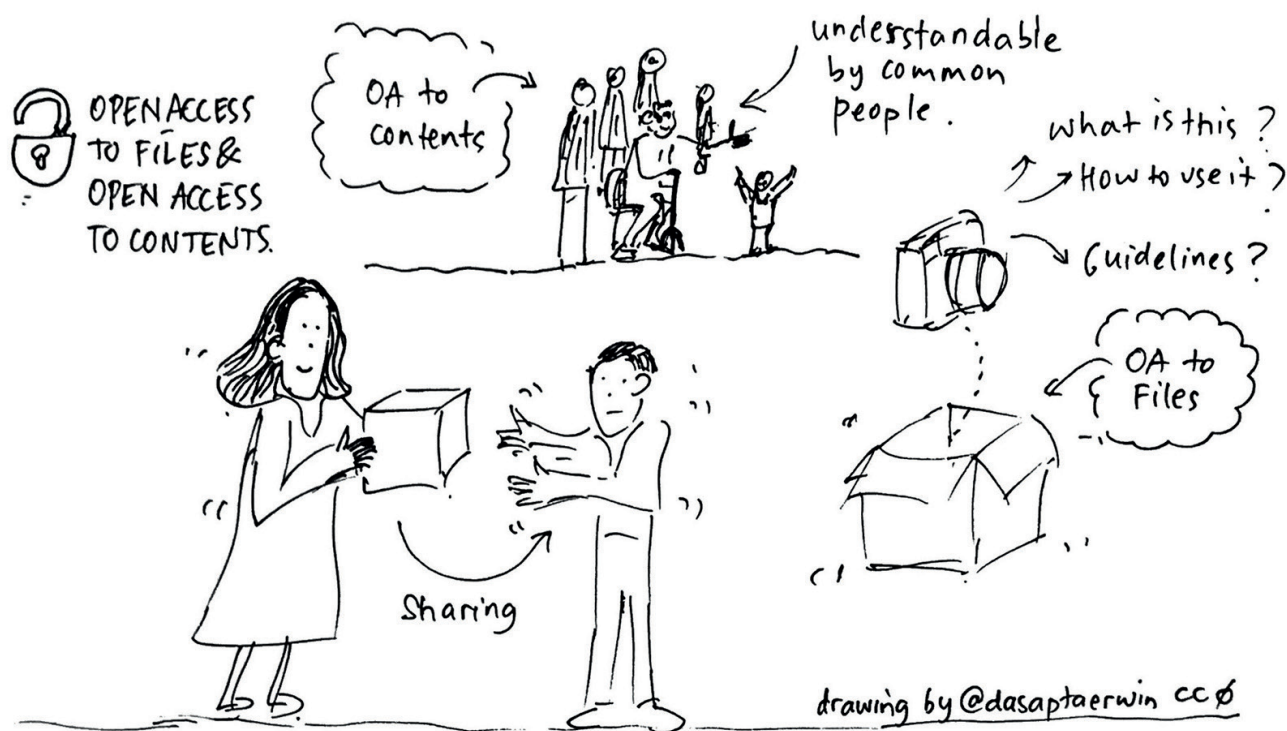 OPEN ACCESS
TO FILES &
OPEN ACCESS
TO CONTENTS.
OA to
contents
understandable
by common
people.
what is this?
How to use it?
Guidelines?
OA to
Files
Sharing
drawing by @dasaptaerwin CCØ